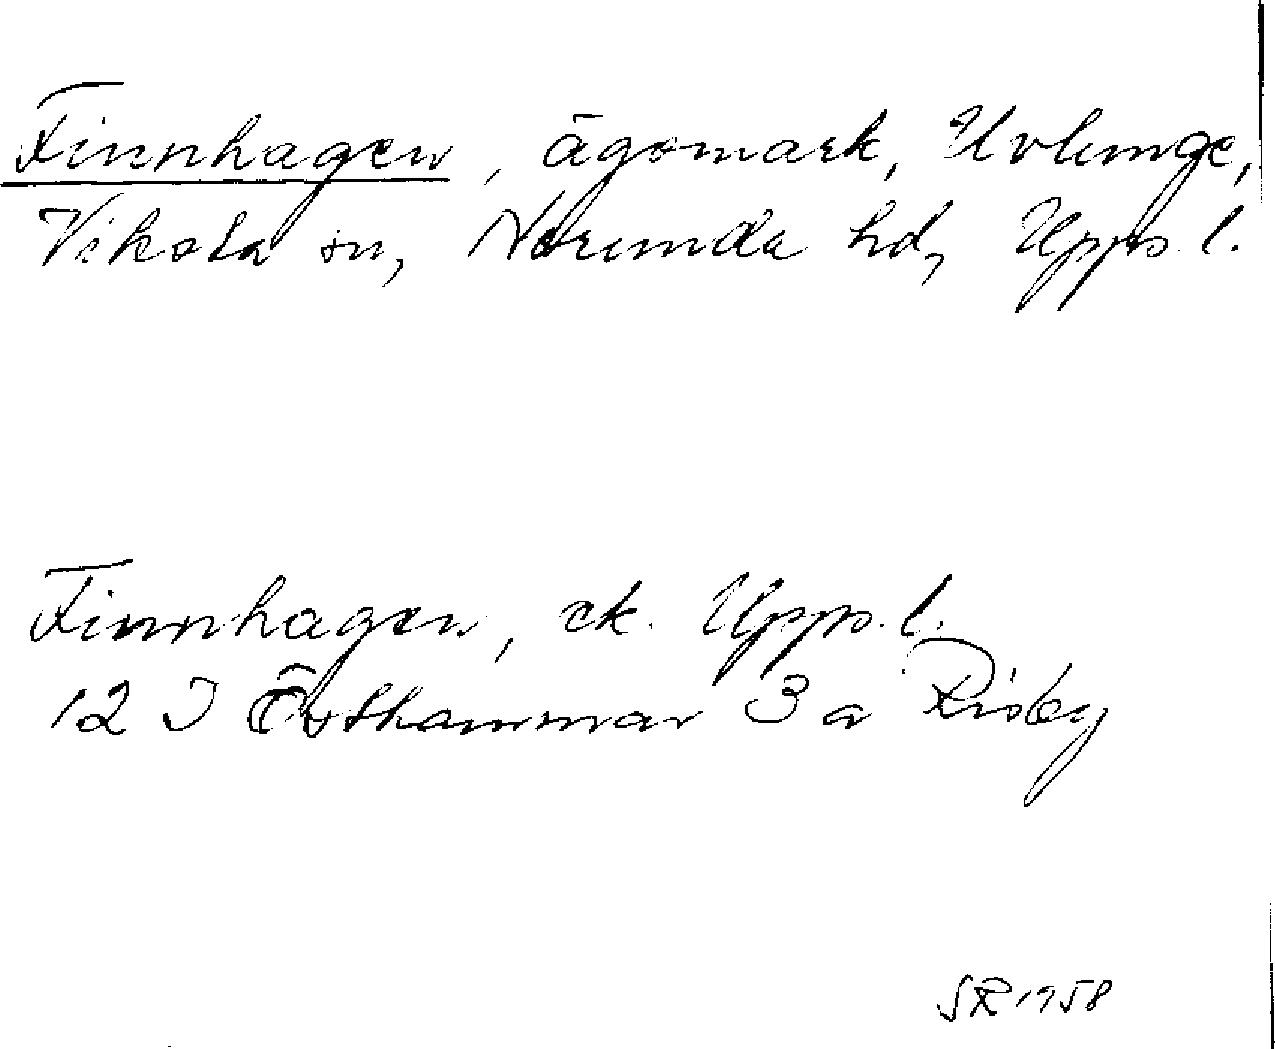 Finnhagen, ägomark, Uvlunge,
Viksta sn, Norunda hd, Uppl.
Finnhagen, ek. Uppl.
12 I Östhammar 3 a Risby
SR 1958